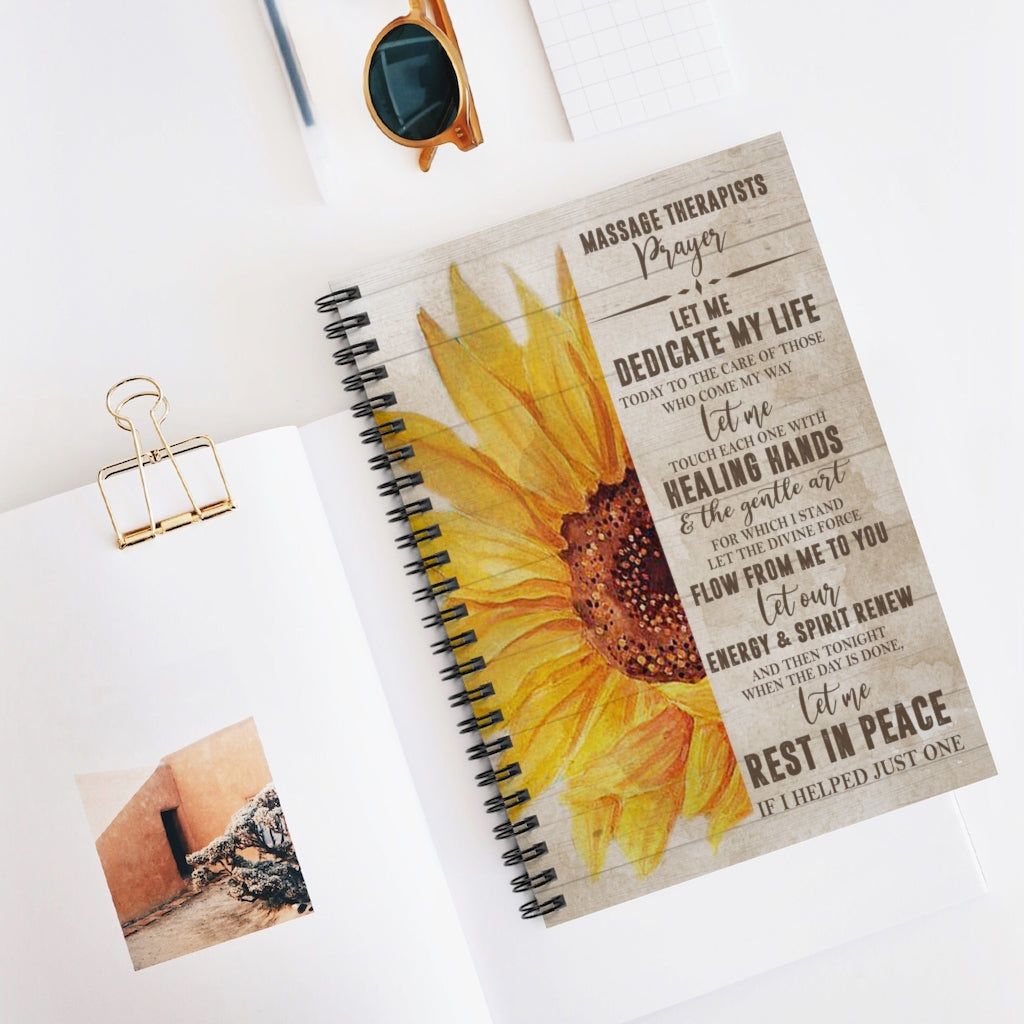 MASSAGE THERAPISTS
Prayer
LET ME
DEDICATE MY LIFE
TODAY TO THE CARE OF THOSE
WHO COME MY WAY
let me
TOUCH EACH ONE WITH
HEALING HANDS
& the gentle art
FOR WHICH I STAND
LET THE DIVINE FORCE
FLOW FROM ME TO YOU
let our
ENERGY & SPIRIT RENEW
AND THEN TONIGHT
WHEN THE DAY IS DONE,
let me
REST IN PEACE
IF I HELPED JUST ONE